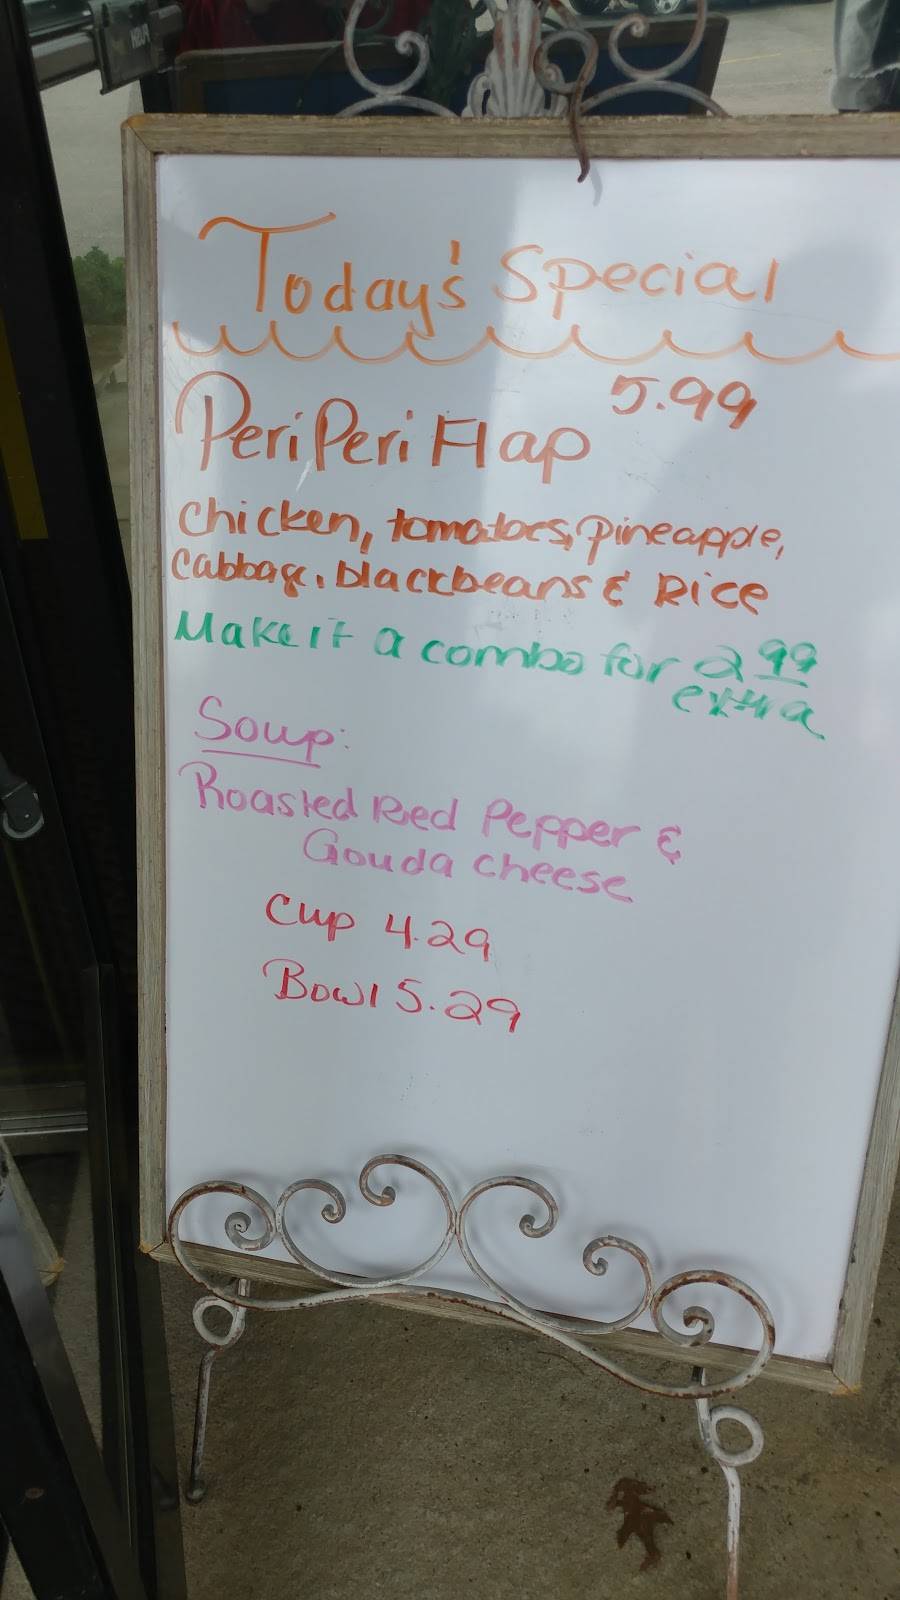 Today's Special
5.99
Peri Peri Flap
Chicken, tomatoes, pineapple,
Cabbage, blackbeans & Rice
Make it a combo for 2 99
extra
Soup:
Roasted Red Pepper &
Gouda cheese
Cup 4.29
Bowl 5.29